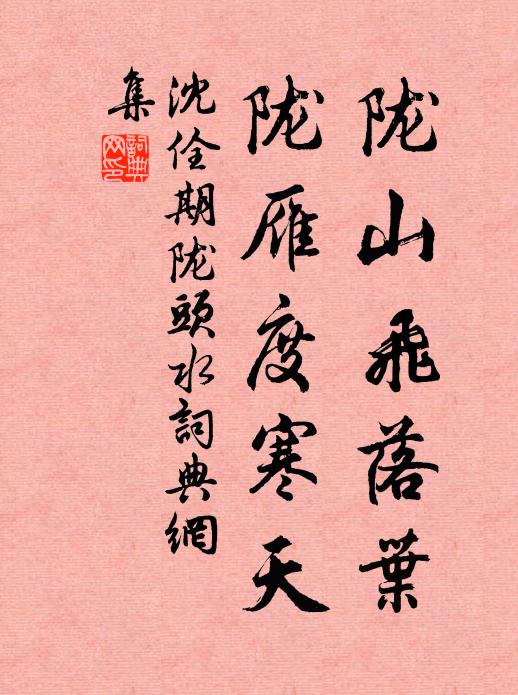 陇山飛落葉
陇雁度寒天
沈佺期陇頭水詞典網
集
詞典网印